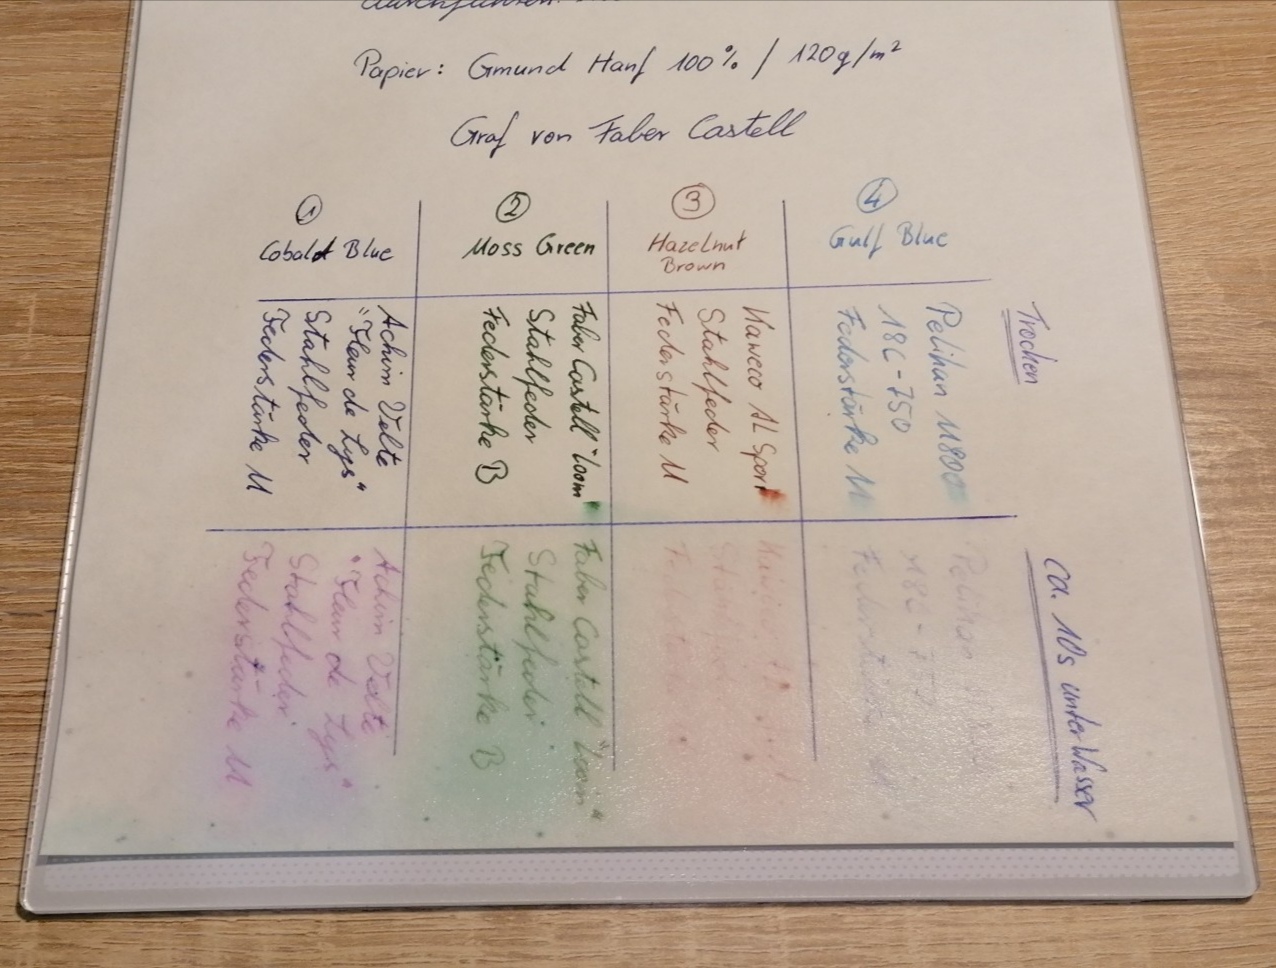 Papier: Gmund Hanf 100% / 120g/m²
Graf von Faber Castell
① Cobalt Blue
② Moss Green
③ Hazelnut Brown
④ Gulf Blue
Trocken
Achim Velte
"Fleur de Lys"
Stahlfeder
Federstärke M
Faber Castell "Loom"
Stahlfeder
Federstärke B
Kaweco AL Sport
Stahlfeder
Federstärke M
Pelikan M800
18C-750
Federstärke M
ca. 10s unter Wasser
Achim Velte
"Fleur de Lys"
Stahlfeder
Federstärke M
Faber Castell "Loom"
Stahlfeder
Federstärke B
Stahlfeder
Federstärke
Pelikan
18C-750
Federstärke M